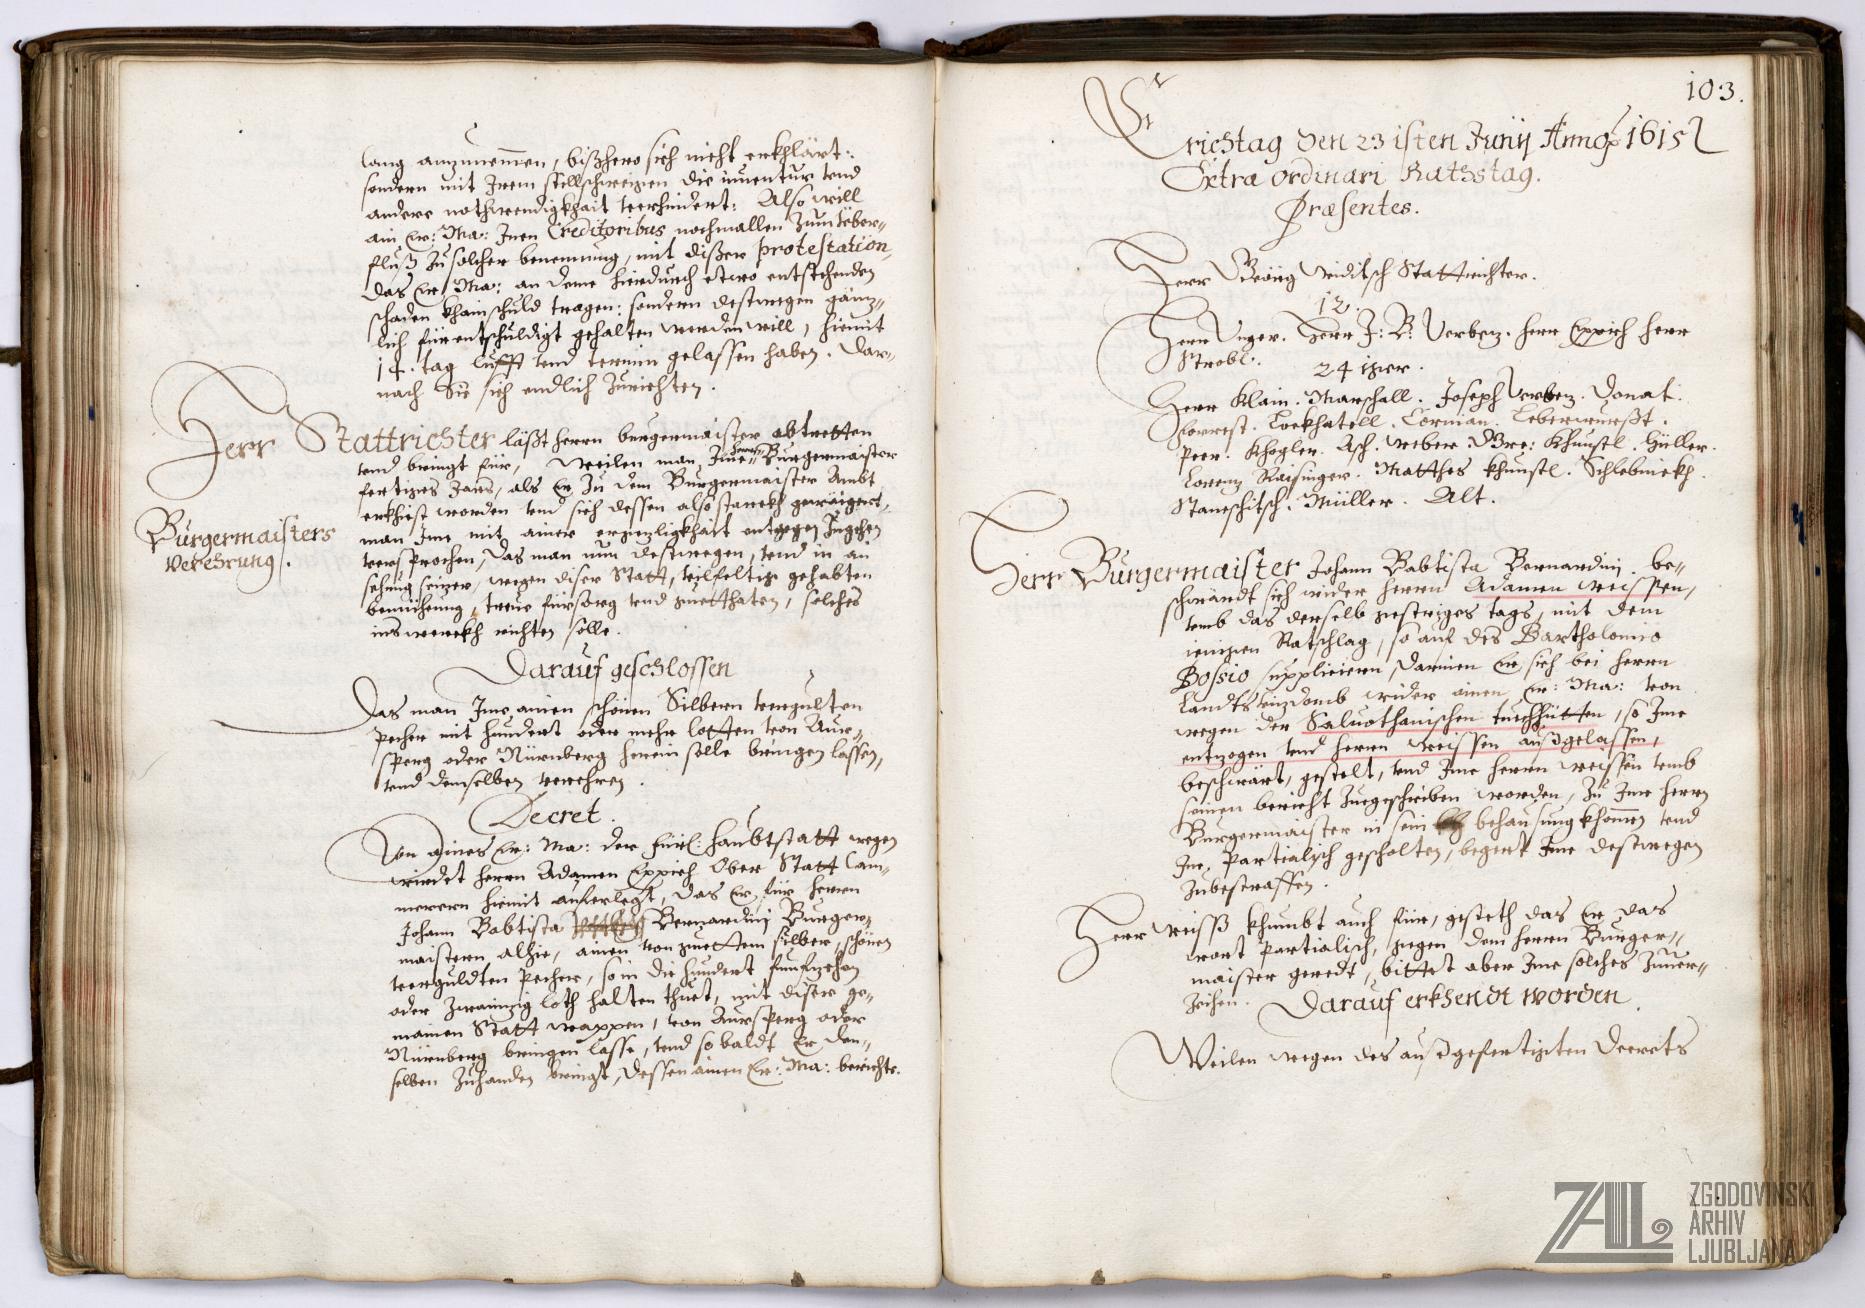 lang anzunemmen, bißhero sich nicht erkhlärt:
sondern mit Irem stillschweigen die inuentur vnd
andere nothwendigkhait verhindert: Also will
ain Er: Ma: Inen Creditoribus nochmallen zum Über-
fluß zu solcher benennung, mit diser protestation,
das Er: Ma: an deme hierdurch etwo entstehenden
schaden khain schuld tragen: sondern destwegen gänz-
lich für entschuldigt gehalten werden will, hiemit
14. tag lufft vnd termin gelassen haben. Dar-
nach Sie sich endlich zurichten.
Herr Stattrichter läßt herrn burgermaister abtretten
vnd bringt für, weilen man Ime herrn Burgermaister
fertiges Jars, als Er zu dem Burgermaister Ambt
erkhiest worden vnd sich dessen also starckh gewaigert,
man Ime mit ainer ergezligkhait entgegen zugehen
versprochen, das man nun destwegen, vnd in an
sehung seiner, wegen diser Statt, vilfeltig gehabten
bemüehung, treue fürsorg vnd guetthaten, solches
ins werckh richten solle.
Burgermaisters
verehrung.
Darauf geschlossen
Das man Ime ainen schönen Silbern vergulten
Pecher mit hundert oder mehr lotten von Aur-
sperg oder Nürnberg herein solle bringen lassen,
vnd demselben verehren.
Decret.
Von aines Er: Ma: der Fürl: Haubtstatt wegen
wirdet herrn Adamen Eppich Ober Statt Cam-
merern hiemit auferlegt, das Er, für herrn
Johann Babtista Bernardinj Burger-
maistern alhie, ainen von guettem silber, schönen
verguldten Pecher, so in die hundert funfzehen
oder zwainzig loth halten thuet, mit diser ge-
mainen Statt wappen, von Aursperg oder
Nürnberg bringen lasse, vnd so baldt Er den-
selben zuhanden bringt, dessen ainen Er: Ma: berichte.
103.
Erichtag den 23 isten Junij Anno 1615
Extra ordinari Rathstag.
Præsentes.
Herr Geörg Viditsch Stattrichter.
12.
Herr Vnger. Herr J: B: Verbez. herr Eppich herr
Strobl.
24 iger.
Herr Klain. Marschall. Joseph Verbez. Donat.
Forrest. Lockhatell. Corman. Leberwurßt.
Peer. Khogler. Asch. Weber. Gre: Khunstl. Güeller.
Lorenz Raisinger. Matthes Khunstl. Schlebnickh.
Staneschitsch. Müller. Alt.
Herr Burgermaister Johann Babtista Bernardinj. be-
schwärdt sich wider herrn Adamen Weissen,
vmb das derselb gestriges tags, mit dem
ienigen Ratschlag, so auf des Bartholomio
Bossio suppliciern, darinen Er sich bei herrn
Landtsvizdomb wider ainen Er: Ma: von
wegen der Saluothanischen tuechhütten, so Ime
entzogen vnd herrn Weissen außgelassen,
beschwärt, gestelt, vnd Ime herrn Weissen vmb
seinen bericht zuegeschriben worden, zu Ime herrn
Burgermaister in sein behausung khomen vnd
Ine Partialisch gescholten, begert Ine destwegen
zubestraffen.
Herr Weiss khumbt auch für, gesteth das Er das
wort Partialisch, gegen dem herrn Burger-
maister geredt, bittet aber Ime solches zuuer-
zeihen.
Darauf erkhendt worden.
Weilen wegen des außgefertigten Decrets
ZAL
ZGODOVINSKI
ARHIV
LJUBLJANA